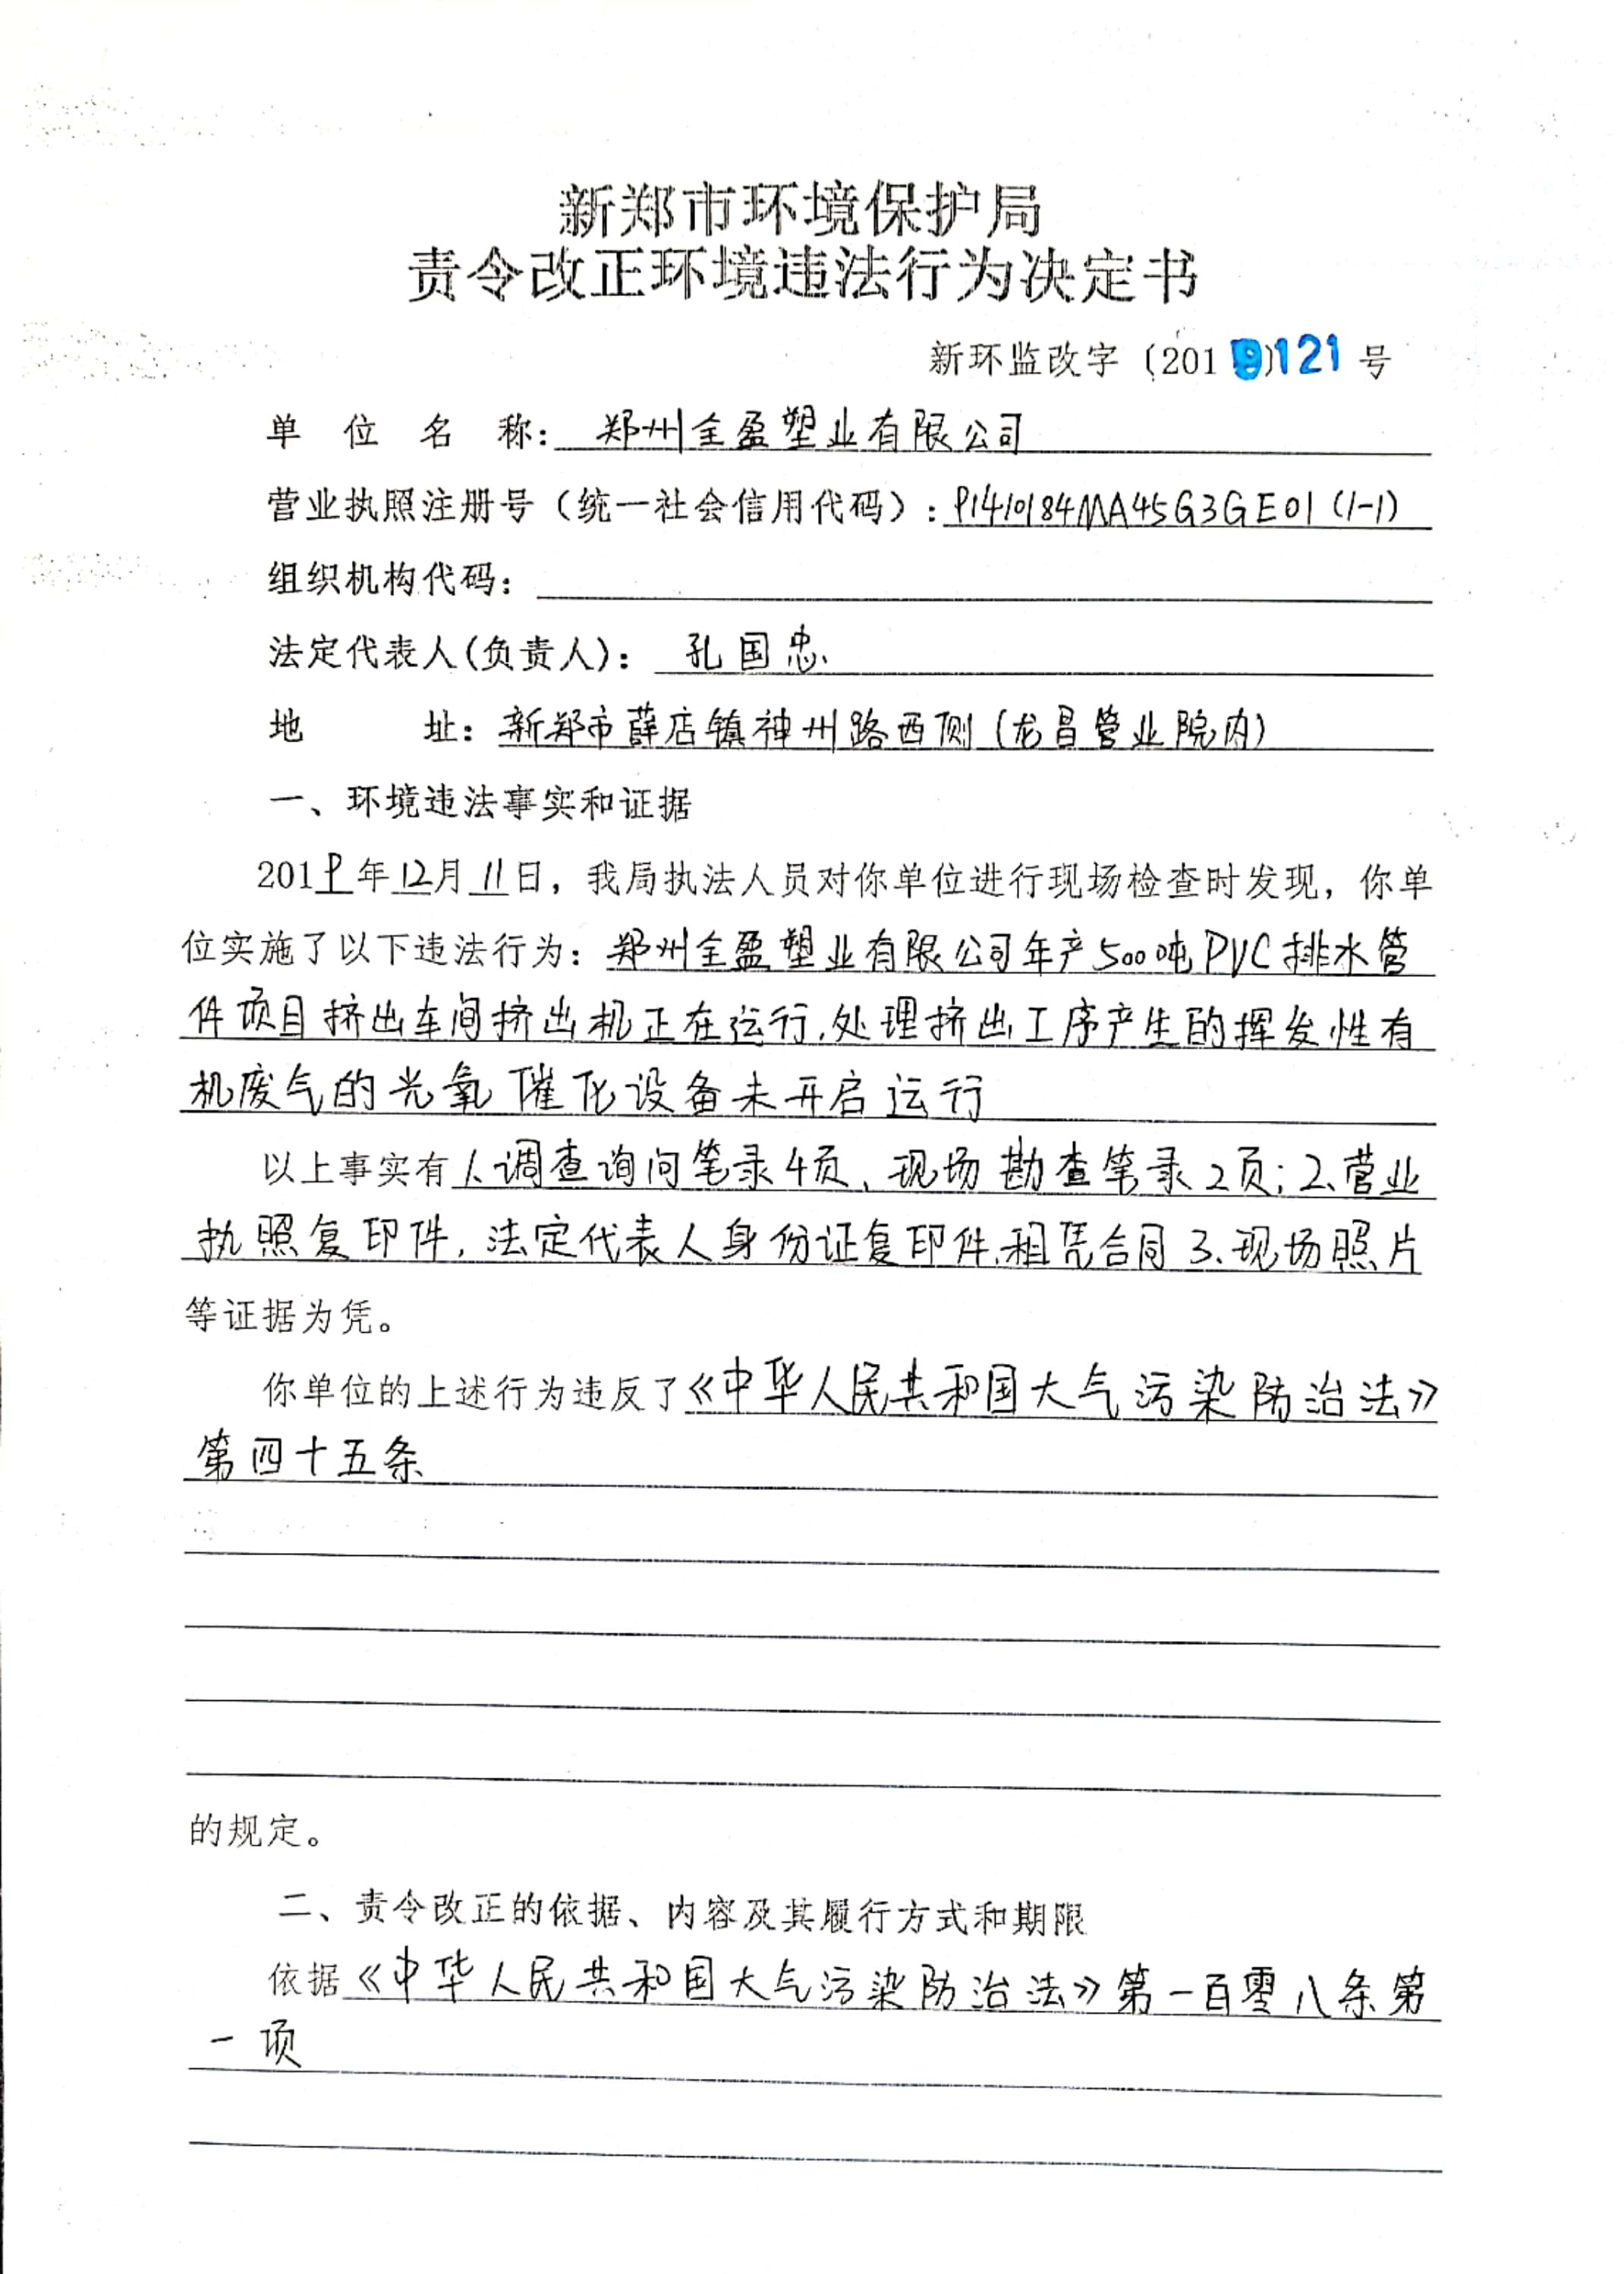 新郑市环境保护局
责令改正环境违法行为决定书
新环监改字〔2019〕121号
单位名称：郑州全盈塑业有限公司
营业执照注册号（统一社会信用代码）：91410184MA45G3GE01（1-1）
组织机构代码：
法定代表人(负责人)：孔国忠
地址：新郑市薛店镇神州路西侧（龙昌管业院内）
一、环境违法事实和证据
2019年12月11日，我局执法人员对你单位进行现场检查时发现，你单
位实施了以下违法行为：郑州全盈塑业有限公司年产500吨PVC排水管
件项目挤出车间挤出机正在运行，处理挤出工序产生的挥发性有
机废气的光氧催化设备未开启运行
以上事实有1、调查询问笔录4页、现场勘查笔录2页；2、营业
执照复印件，法定代表人身份证复印件、租凭合同3、现场照片
等证据为凭。
你单位的上述行为违反了《中华人民共和国大气污染防治法》
第四十五条
的规定。
二、责令改正的依据、内容及其履行方式和期限
依据《中华人民共和国大气污染防治法》第一百零八条第
一项